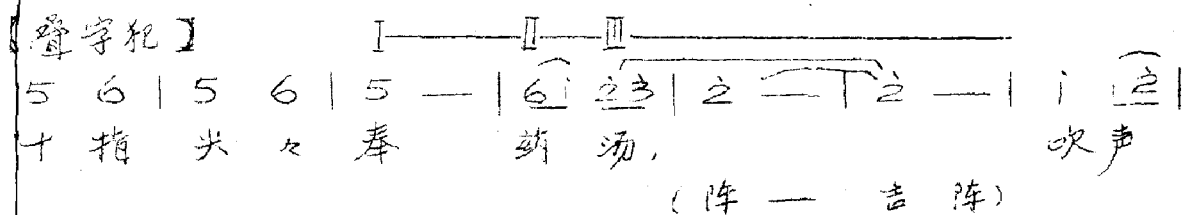 【叠字犯】 Ⅰ———Ⅱ——Ⅲ——————
5 6 | 5 6 | 5 — | 6i 2̇3̇ | 2̇ — | 2̇ — | i i2̇ |
十 指 尖 々 奉 药 汤, 吹 声
(阵 — 吉 阵)